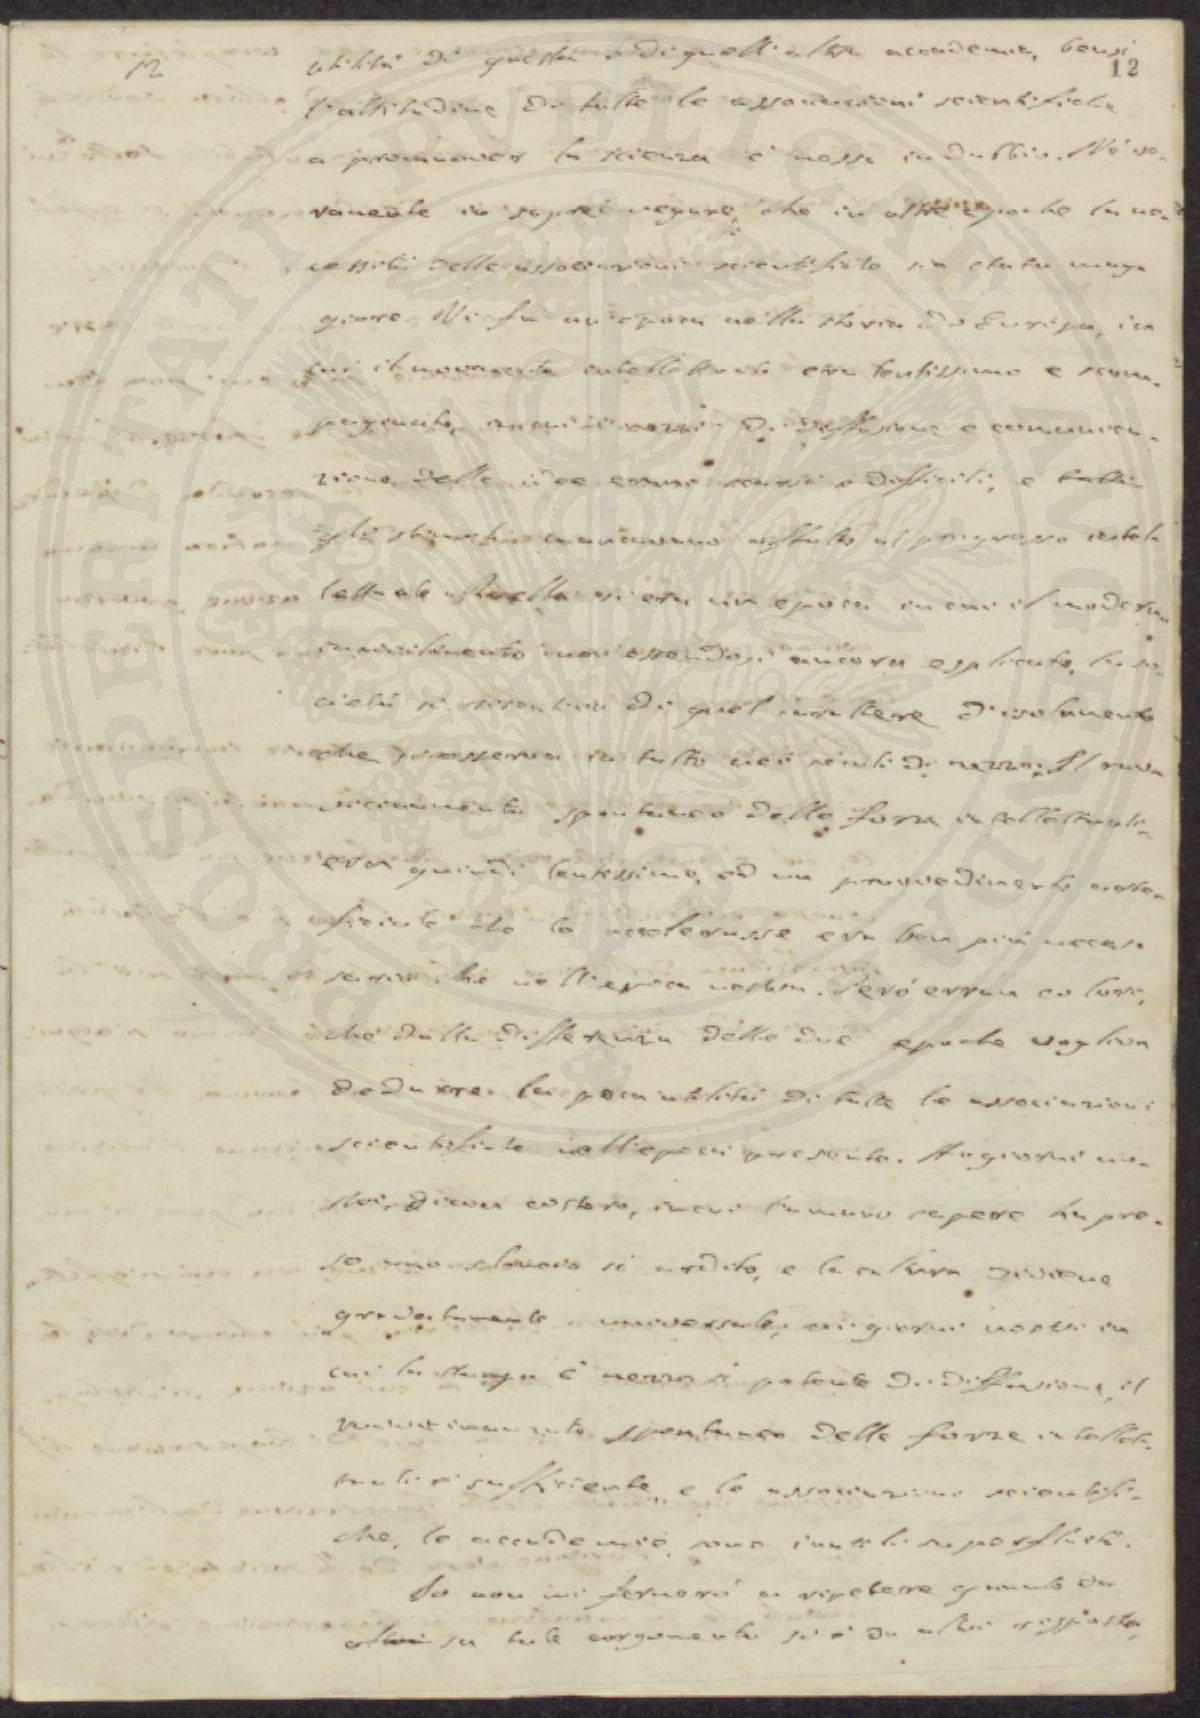 12
12
utilità di questa o di quell'altra accademia, bensì
l'attitudine di tutte le associazioni scientifiche
a promuover la scienza è messa in dubbio. Nè ve-
ramente io saprei negare, che in altre epoche la ne-
cessità delle associazioni scientifiche sia stata mag-
giore. Vi fu un'epoca nella storia d'Europa, in
cui il movimento intellettuale era lentissimo e scom-
paginato, in cui i mezzi di diffusione e comunica-
zione delle idee erano scarsi e difficili, e tutti
gli stimoli mancavano affatto al progresso intel-
lettuale. Quella si era un'epoca in cui il moderno
incivilimento non essendosi ancora esplicato, la so-
cietà si risentiva di quel carattere d'isolamento
che si osserva in tutto nei secoli di mezzo. Il
spontaneo delle forze intellettuali
era quindi lentissimo, ed un provvedimento arti-
ficiale che lo accelerasse era ben più neces-
sario che nell'epoca nostra. Però errano coloro,
che dalla differenza delle due epoche vogliono
dedurre la poca utilità di tutte le associazioni
scientifiche nell'epoca presente. A' giorni no-
stri, dicon costoro, in cui l'umano sapere ha pre-
so uno slancio sì ardito, e la cultura diviene
gradatamente universale, ai giorni nostri in
cui la stampa è mezzo sì potente di diffusione, il
spontaneo delle forze intellet-
tuali è sufficiente, e le associazioni scientifi-
che, le accademie, sono inutili superfluità.
Io non mi fermerò a ripetere quanto da
su tale argomento si è da altri risposto,
PROSPERITATI PUBLICAE AUGENDAE